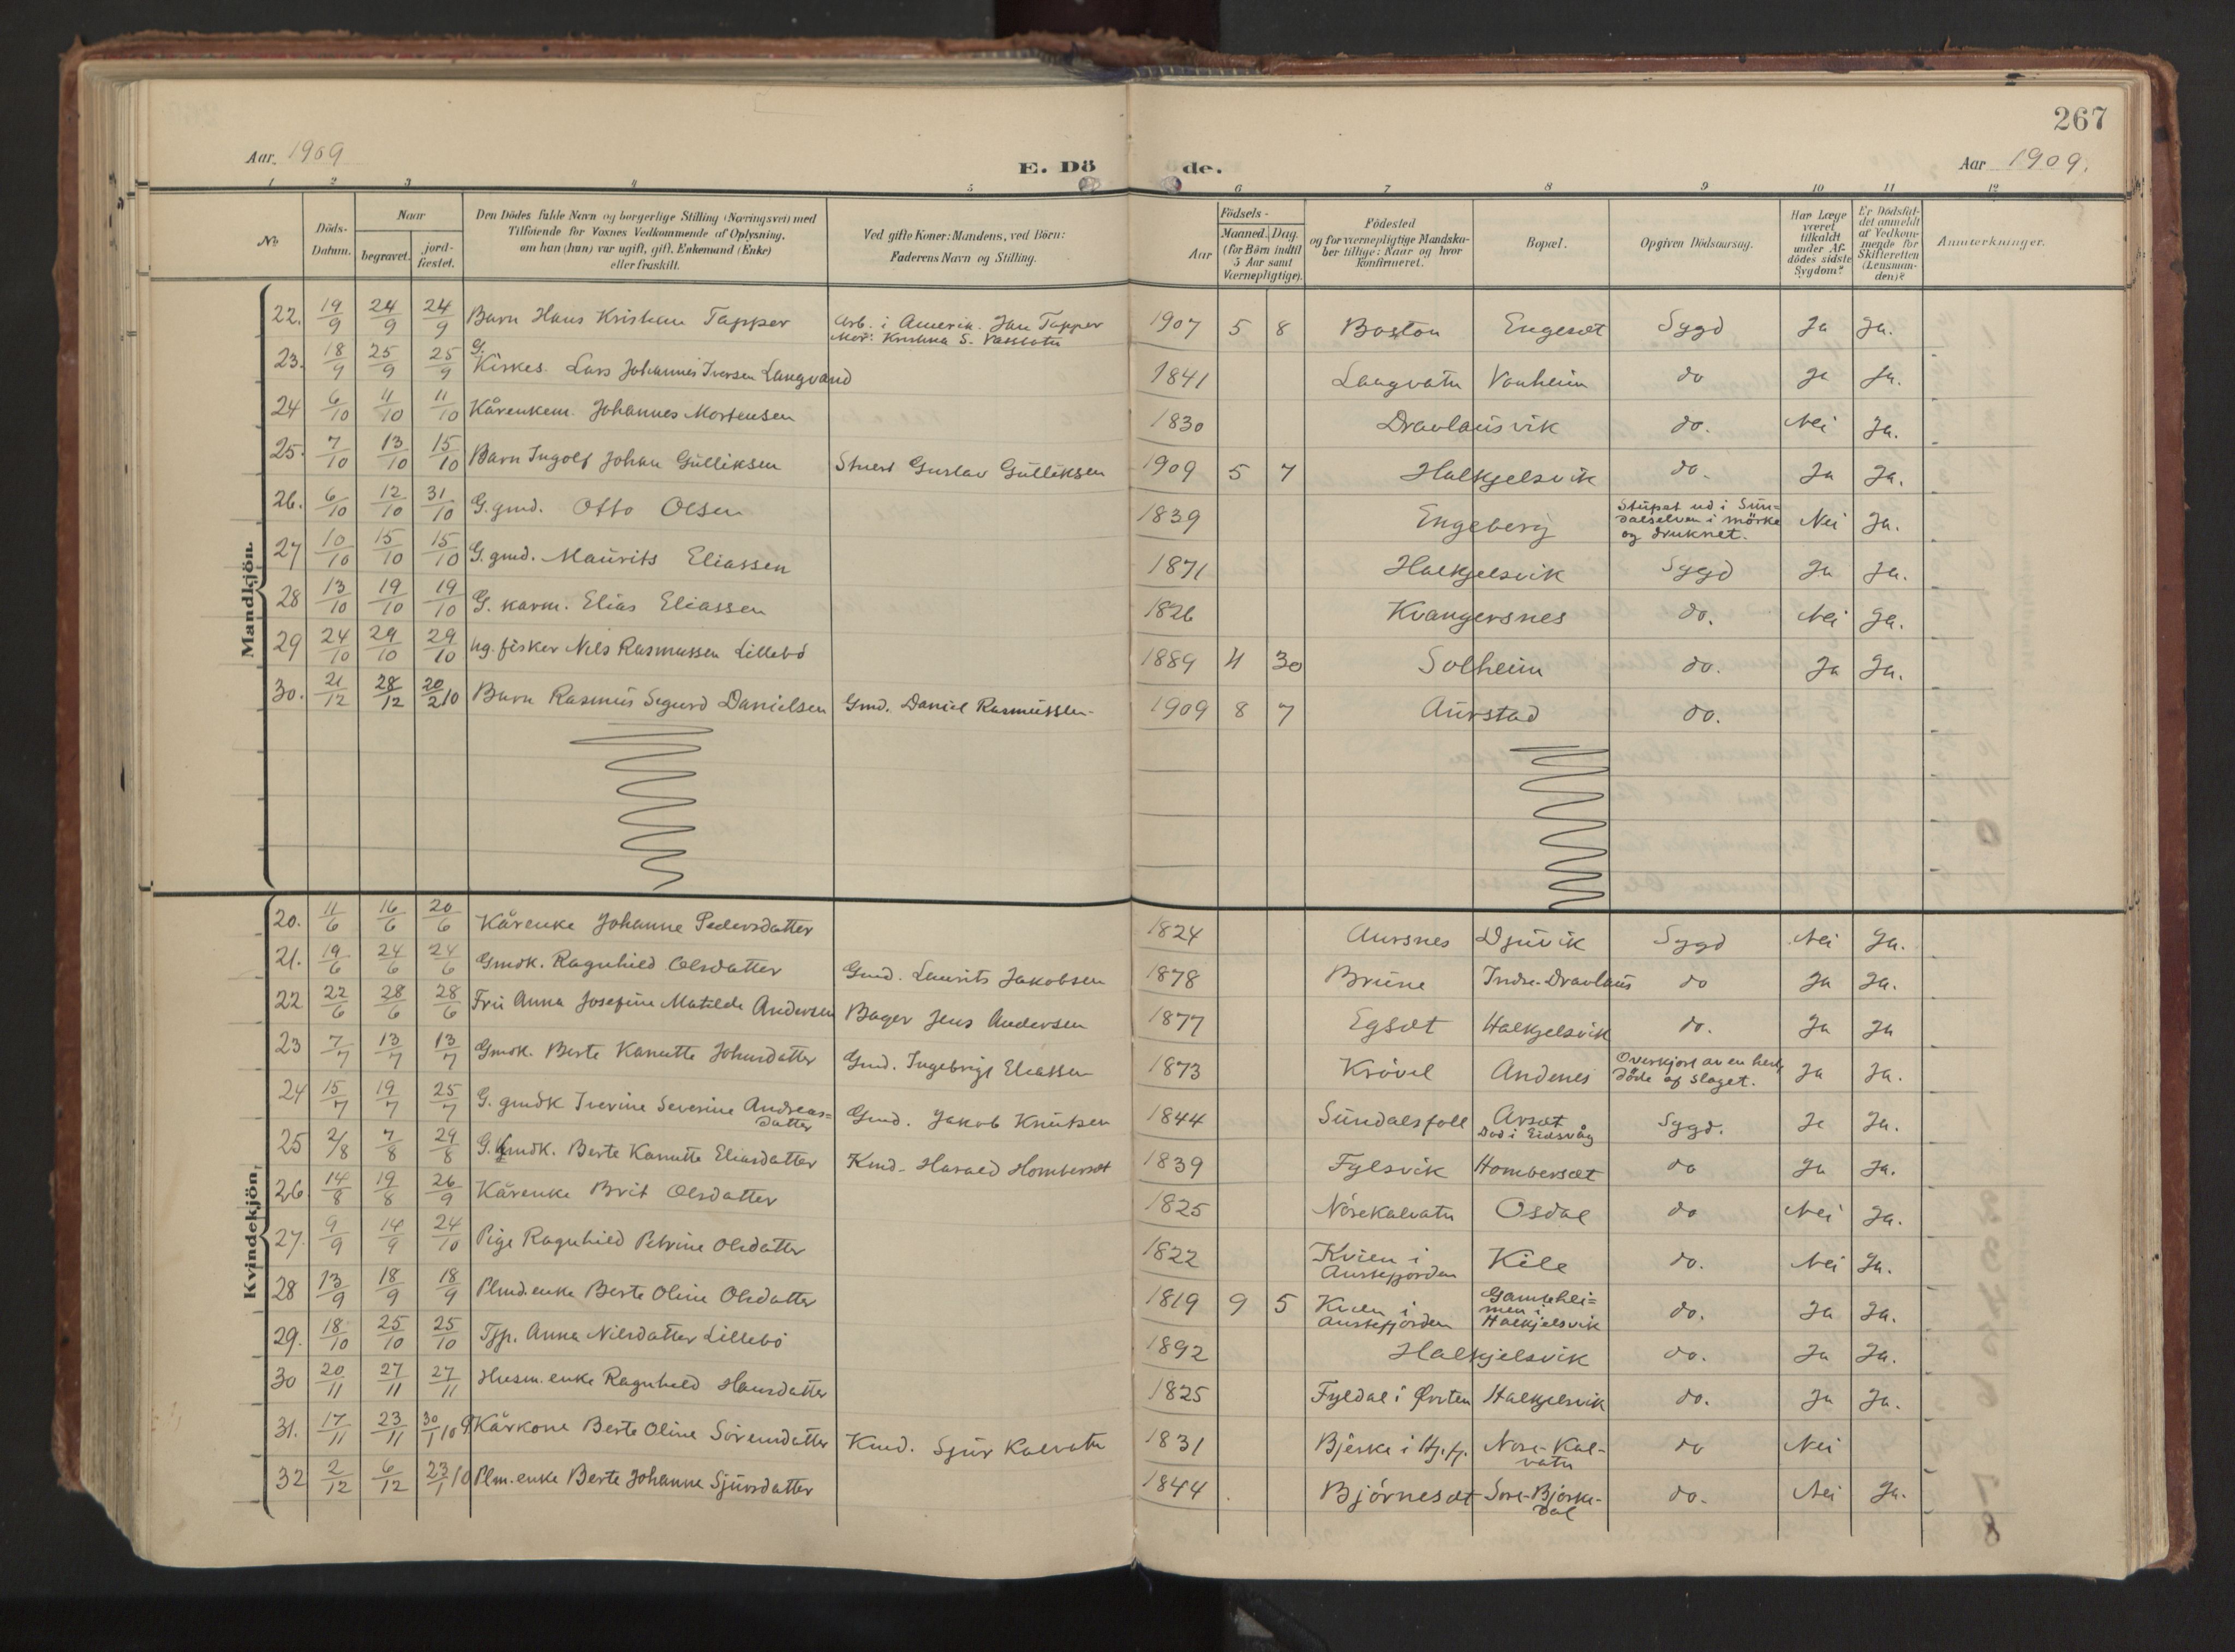 267
Aar. 1909
E. Dö
de.
Aar 1909.
1 2 3 4 5 6 7 8 9 10 11 12
No
Döds-
Datum.
Naar
begravet.
jord-
fæstet.
Den Dödes fulde Navn og borgerlige Stilling (Næringsvei) med
Tilföiende for Voxnes Vedkommende af Oplysning,
om han (hun) var ugift, gift, Enkemand (Enke)
eller fraskilt.
Ved gifte Koner: Mandens, ved Börn:
Faderens Navn og Stilling.
Födsels-
Aar
Maaned. Dag.
(for Börn indtil
5 Aar samt
Værnepligtige).
Födested
og for værnepligtige Mandska-
ber tillige: Naar og hvor
konfirmeret.
Bopæl.
Opgiven Dödsaarsag.
Har Læge
været
tilkaldt
under Af-
dödes sidste
Sygdom?
Er Dödsfal-
det anmeldt
af Vedkom-
mende for
Skifteretten
(Lensman-
den)?
Anmærkninger.
Mandkjön.
22. 19/9 24/9 24/9 Barn Hans Kristian Tapper Arb. i Amerik. Jan Tapper 1907 5 8 Boston Engeset Sygd Ja Ja.
Mor: Kristina S.
23. 18/9 25/9 25/9 G. Kirkes. Lars Johannes Iversen Langvand 1841 Langvatn Vonheim do Ja Ja.
24 6/10 11/10 11/10 Kårenkem. Johannes Mortensen 1830 Dravlausvik do. Nei Ja.
25. 7/10 13/10 15/10 Barn Ingolf Johan Gulliksen Stuert Gustav Gulliksen 1909 5 7 Halkjelsvik do. Ja Ja.
26. 6/10 12/10 31/10 G. gmd. Otto Olsen 1839 Engeberg Stupet ud i Sun=
dalselven i mörke
og druknet. Nei Ja.
27 10/10 15/10 15/10 G. gmd. Maurits Eliassen 1871 Halkjelsvik Sygd Ja Ja.
28 13/10 19/10 19/10 G. karm. Elias Eliassen 1826 Kvangersnes do. Nei Ja.
29 24/10 29/10 29/10 ug. fisker Nils Rasmussen Lillebö 1889 4 30 Solheim do. Ja Ja.
30. 21/12 28/12 20/2 10 Barn Rasmus Segurd Danielsen Gmd. Daniel Rasmussen 1909 8 7 Aurstad do.
Kvindekjön.
20. 11/6 16/6 20/6 Kårenke Johanne Pedersdatter 1824 Aursnes Djuvik Sygd Nei Ja.
21. 19/6 24/6 24/6 Gmdk. Ragnhild Olsdatter Gmd. Laurits Jakobsen 1878 Brune Indre-Dravlaus do Ja Ja.
22 22/6 28/6 28/6 Fru Anna Josefine Matilde Andersen Bager Jens Andersen 1877 Egset Halkjelsvik do. Ja Ja
23 7/7 13/7 13/7 Gmdk. Berte Kanutte Johnsdatter Gmd. Ingebrigt Eliassen 1873 Krövel Andenes Overkjort av en hest,
döde af slaget. Ja Ja.
24 15/7 19/7 25/7 G. gmdk Iverine Severine Andreas=
datter Gmd. Jakob Knutsen 1844 Sundalsfoll Arset
Död i Eidsvåg Sygd. Ja Ja.
25 2/8 7/8 29/8 G. kmdk. Berte Kanutte Eliasdatter Kmd. Harald Hombersæt 1839 Fylsvik Hombersæt do Ja Ja.
26. 14/8 19/8 26/9 Kårenke Brit Olsdatter 1825 Nörekalvatn Osdal do Nei Ja.
27. 9/9 14/9 24/10 Pige Ragnhild Petrine Olsdatter 1822 Kvien i
Austefjorden Kile do. Nei Ja.
28 13/9 18/9 18/9 Plmd.enke Berte Oline Olsdatter 1819 9 5 Kvien i
Austefjorden Gamlehei=
men i
Halkjelsvik do. Ja Ja.
29. 18/10 25/10 25/10 Tjp. Anna Nilsdatter Lillebö 1892 Halkjelsvik do. Ja Ja.
30 20/11 27/11 27/11 Husm.enke Ragnhild Hansdatter 1825 Fyldal i Örsten Halkjelsvik do. Ja Ja.
31. 17/11 23/11 30/1 10 G. Kårkone Berte Oline Sörensdatter Kmd. Sjur Kalvatn 1831 Bjerke i Hj.fj. Nore-Kal-
vatn do Nei
32 2/12 6/12 23/1 10 Plm.enke Berte Johanne Sjursdatter 1844 Björneset Sore-Bjorke-
dal do. Nei Ja.